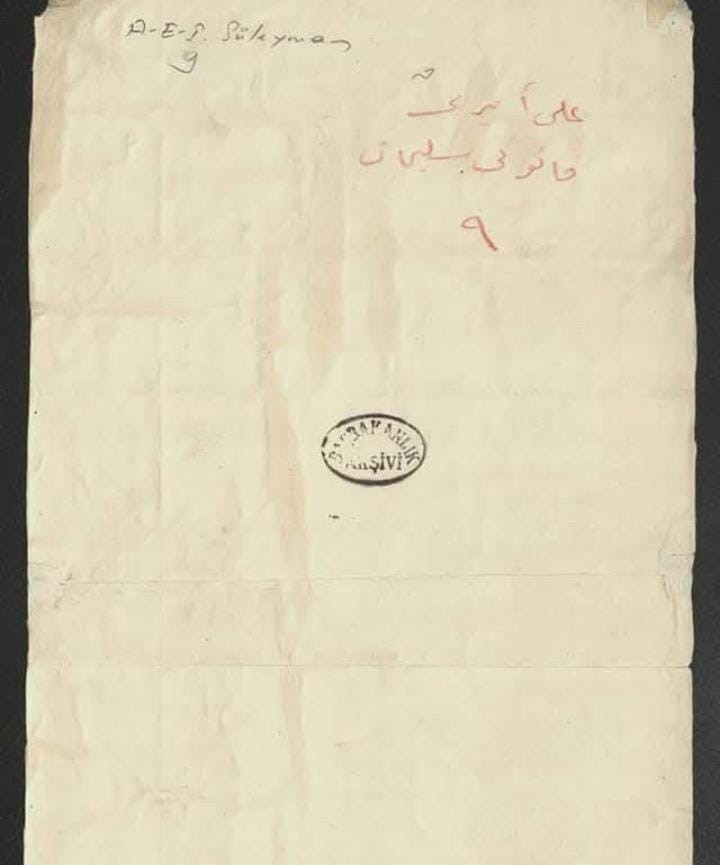 A-E-I. Süleyman
9
علی أمیری
قانونی سلیمان
٩
BAŞBAKANLIK
ARŞİVİ